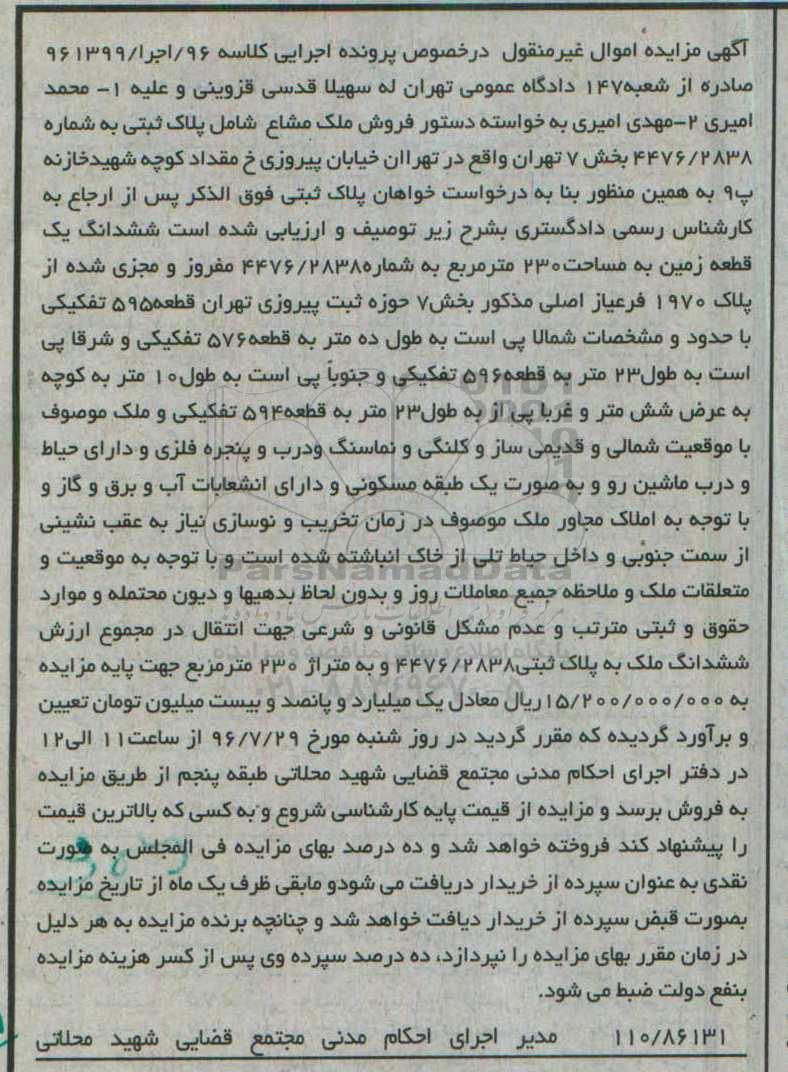 آگهی مزایده اموال غیرمنقول درخصوص پرونده اجرایی کلاسه ۹۶/اجرا/۹۶۱۳۹۹
صادره از شعبه۱۴۷ دادگاه عمومی تهران له سهیلا قدسی قزوینی و علیه ۱- محمد
امیری ۲-مهدی امیری به خواسته دستور فروش ملک مشاع شامل پلاک ثبتی به شماره
۴۴۷۶/۲۸۳۸ بخش ۷ تهران واقع در تهراان خیابان پیروزی خ مقداد کوچه شهیدخازنه
پ۹ به همین منظور بنا به درخواست خواهان پلاک ثبتی فوق الذکر پس از ارجاع به
کارشناس رسمی دادگستری بشرح زیر توصیف و ارزیابی شده است ششدانگ یک
قطعه زمین به مساحت۲۳۰ مترمربع به شماره۴۴۷۶/۲۸۳۸ مفروز و مجزی شده از
پلاک ۱۹۷۰ فرعیاز اصلی مذکور بخش۷ حوزه ثبت پیروزی تهران قطعه۵۹۵ تفکیکی
با حدود و مشخصات شمالا پی است به طول ده متر به قطعه۵۷۶ تفکیکی و شرقا پی
است به طول۲۳ متر به قطعه۵۹۶ تفکیکی و جنوباً پی است به طول۱۰ متر به کوچه
به عرض شش متر و غربا پی از به طول۲۳ متر به قطعه۵۹۴ تفکیکی و ملک موصوف
با موقعیت شمالی و قدیمی ساز و کلنگی و نماسنگ ودرب و پنجره فلزی و دارای حیاط
و درب ماشین رو و به صورت یک طبقه مسکونی و دارای انشعابات آب و برق و گاز و
با توجه به املاک مجاور ملک موصوف در زمان تخریب و نوسازی نیاز به عقب نشینی
از سمت جنوبی و داخل حیاط تلی از خاک انباشته شده است و با توجه به موقعیت و
متعلقات ملک و ملاحظه جمیع معاملات روز و بدون لحاظ بدهیها و دیون محتمله و موارد
حقوق و ثبتی مترتب و عدم مشکل قانونی و شرعی جهت انتقال در مجموع ارزش
ششدانگ ملک به پلاک ثبتی۴۴۷۶/۲۸۳۸ و به متراژ ۲۳۰ مترمربع جهت پایه مزایده
به ۱۵/۲۰۰/۰۰۰/۰۰۰ریال معادل یک میلیارد و پانصد و بیست میلیون تومان تعیین
و برآورد گردیده که مقرر گردید در روز شنبه مورخ ۹۶/۷/۲۹ از ساعت۱۱ الی۱۲
در دفتر اجرای احکام مدنی مجتمع قضایی شهید محلاتی طبقه پنجم از طریق مزایده
به فروش برسد و مزایده از قیمت پایه کارشناسی شروع و به کسی که بالاترین قیمت
را پیشنهاد کند فروخته خواهد شد و ده درصد بهای مزایده فی المجلس به صورت
نقدی به عنوان سپرده از خریدار دریافت می شودو مابقی ظرف یک ماه از تاریخ مزایده
بصورت قبض سپرده از خریدار دیافت خواهد شد و چنانچه برنده مزایده به هر دلیل
در زمان مقرر بهای مزایده را نپردازد، ده درصد سپرده وی پس از کسر هزینه مزایده
بنفع دولت ضبط می شود.
۱۱۰/۸۶۱۳۱ مدیر اجرای احکام مدنی مجتمع قضایی شهید محلاتی
ParsNamadData